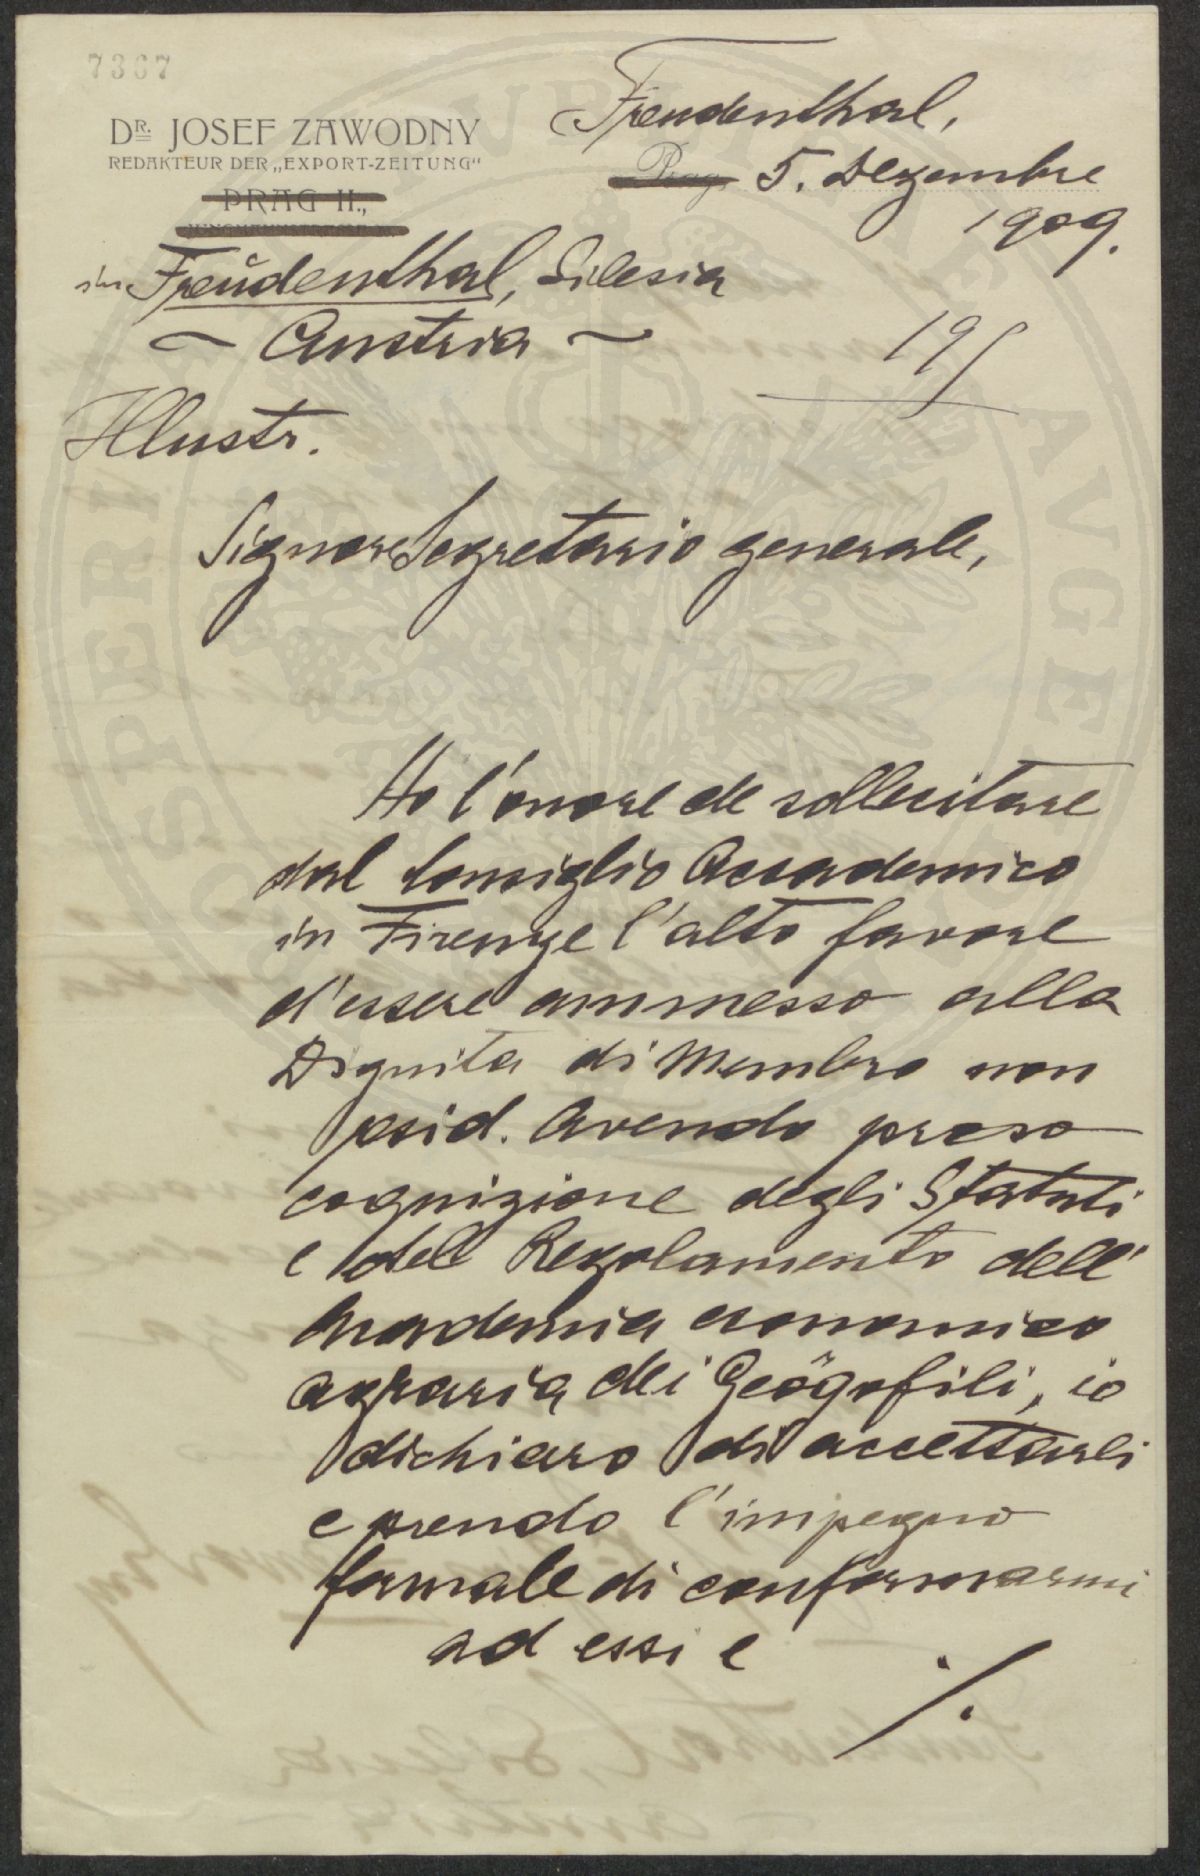 7367
DR. JOSEF ZAWODNY
REDAKTEUR DER „EXPORT-ZEITUNG"
PRAG II.,
in Freudenthal, Silesia
~ Austria ~
Freudenthal,
Prag, 5. Dezembre
1909.
195
Illustr.
Signore Segretario generale,
Ho l'onore de sollecitare
dal Consiglio Accademico
in Firenze l'alto favore
d'essere ammesso alla
Dignita di Membro non
resid. Avendo preso
cognizione degli Statuti
e del Regolamento dell'
Accademia economico
agraria dei Geôgofili, io
dichiaro di accettarli
e prendo l'impegno
formale di conformarmi
ad essi e ./.
PROSPERITATI PVBLICAE AVGENDAE